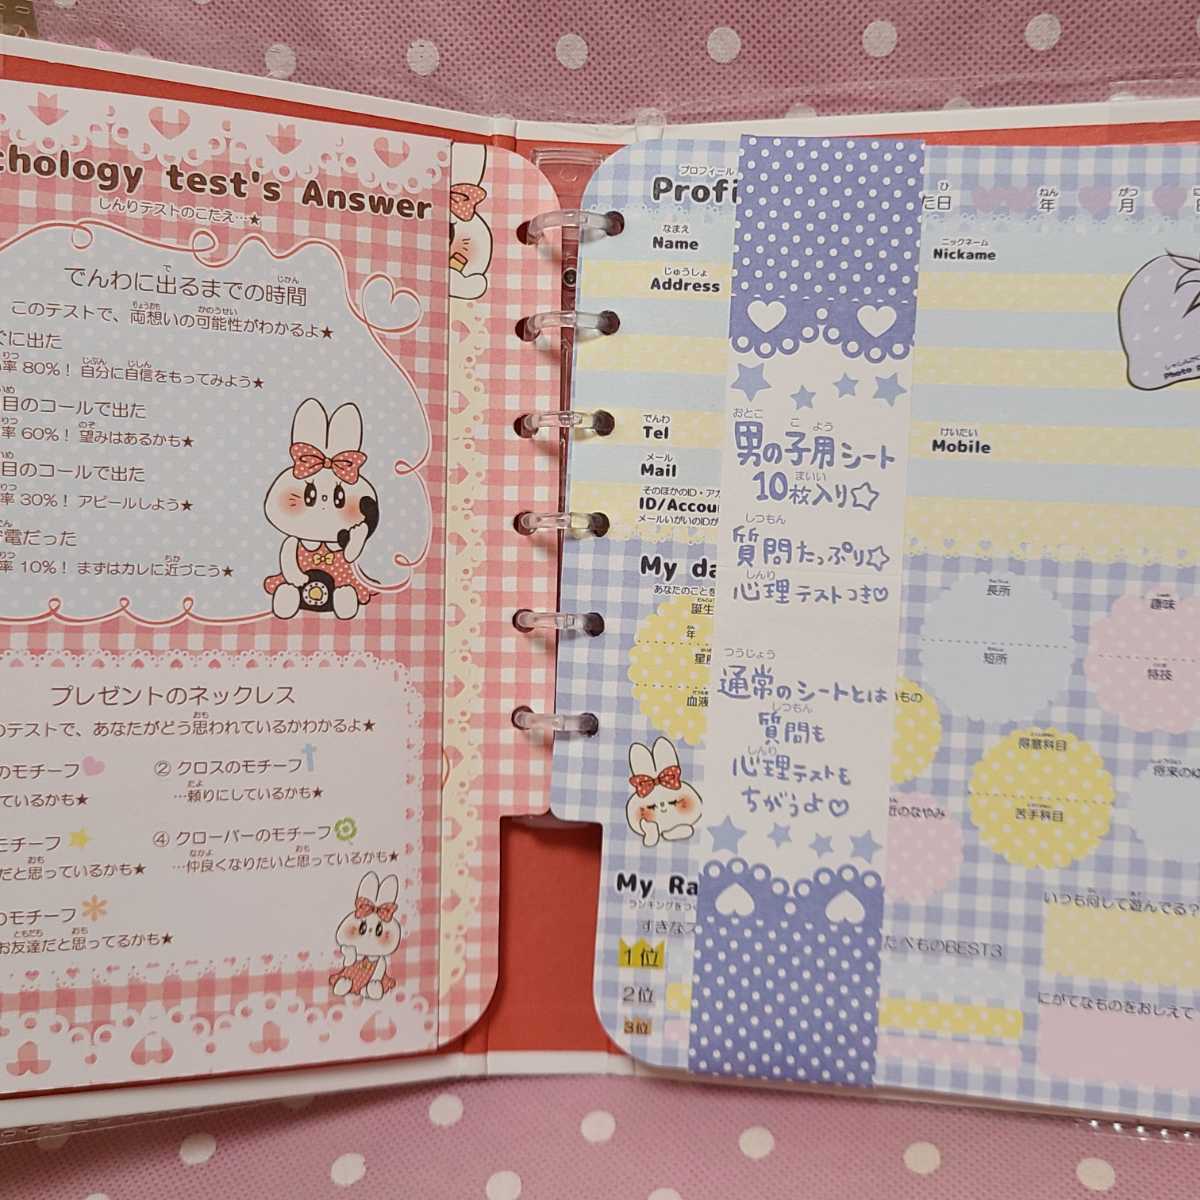 chology test's Answer
しんりテストのこたえ…★
でんわに出るまでの時間
このテストで、両想いの可能性がわかるよ★
ぐに出た
率 80%! 自分に自信をもってみよう★
目のコールで出た
率 60%! 望みはあるかも★
目のコールで出た
率 30%! アピールしよう★
電だった
率 10%! まずはカレに近づこう★
プレゼントのネックレス
のテストで、あなたがどう思われているかわかるよ★
のモチーフ
ているかも★
② クロスのモチーフ
…頼りにしているかも★
モチーフ
だと思っているかも★
④ クローバーのモチーフ
…仲良くなりたいと思っているかも★
のモチーフ
お友達だと思ってるかも★
プロフィール
Profi
た日 年 月
なまえ
Name
ニックネーム
Nickame
じゅうしょ
Address
でんわ
Tel
けいたい
Mobile
メール
Mail
そのほかのID・アカ
ID/Accou
メールいがいのIDが
Photo
My da
あなたのことを
誕生
年
星座
血液
長所
短所
趣味
特技
得意科目
苦手科目
将来のゆ
いもの
近のなやみ
My Ra
ランキングをつ
すきなス
1位
2位
3位
たべものBEST3
いつも何して遊んでる?
にがてなものをおしえて
男の子用シート
10枚入り☆
質問たっぷり☆
心理テストつき♡
通常のシートとは
質問も
心理テストも
ちがうよ♡